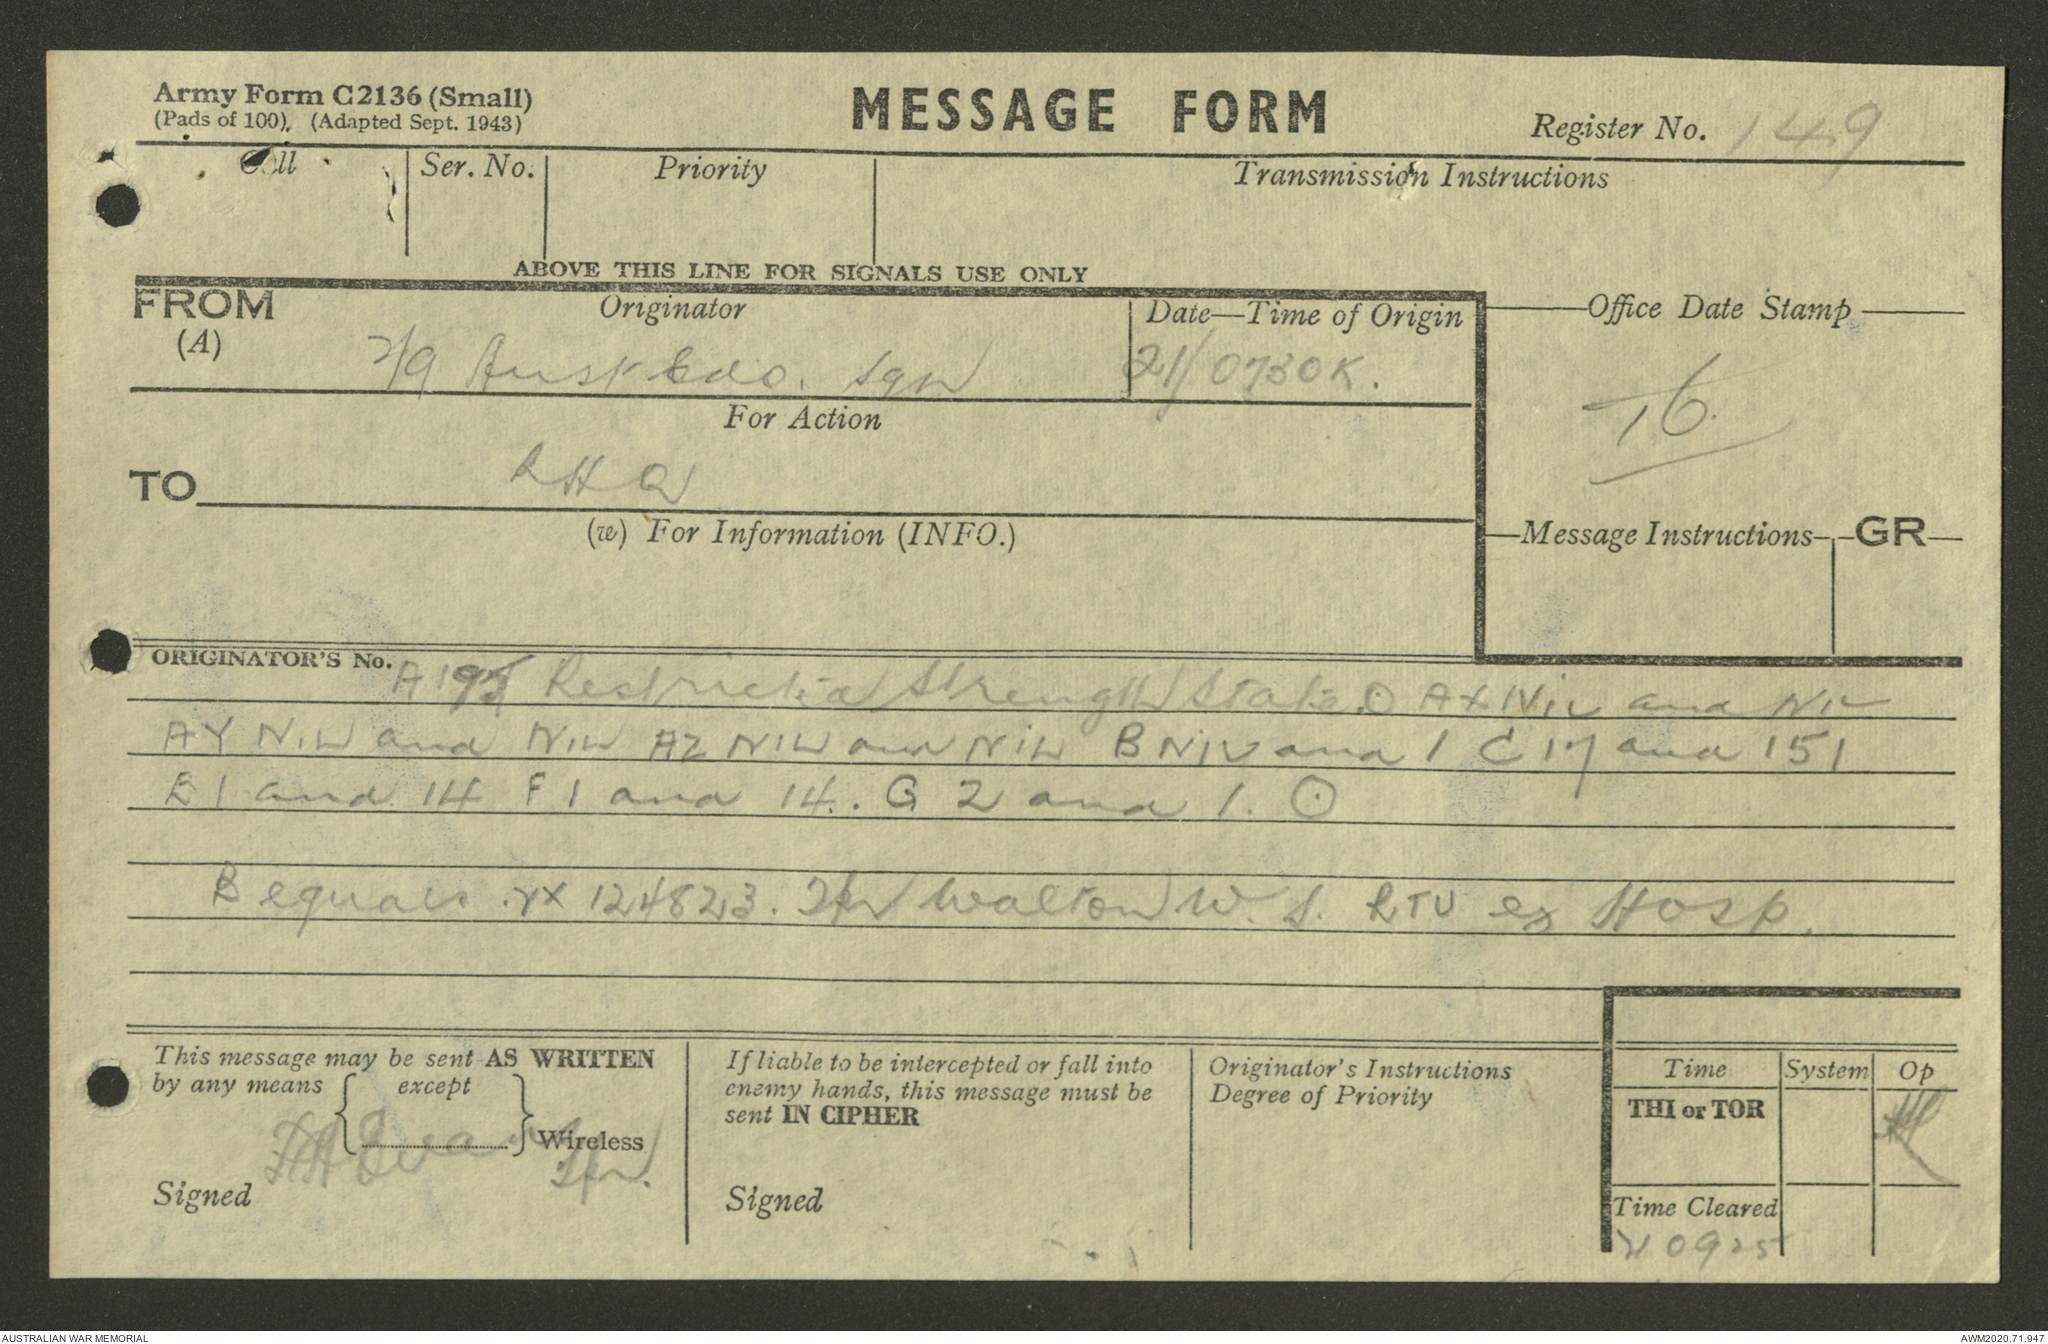 Army Form C2136 (Small)
(Pads of 100). (Adapted Sept. 1943)
MESSAGE FORM
Register No. 149
Call
Ser. No.
Priority
Transmission Instructions
ABOVE THIS LINE FOR SIGNALS USE ONLY
FROM
(A)
Originator
2/9 Aust Cdo. Sqn
Date—Time of Origin
21/0730K.
Office Date Stamp
For Action
TO
RHQ
(w) For Information (INFO.)
Message Instructions
GR
ORIGINATOR'S No.
Restricted Strength State ⊙ AX Nil and Nil
AY Nil and Nil AZ Nil and Nil B Nil and 1 C 17 and 151
E 1 and 14 F 1 and 14. G 2 and 1. ⊙
B equals 124823. Tpr Walton W. S. RTU ex Hosp.
This message may be sent AS WRITTEN
by any means { except } Wireless
Tpr.
Signed
If liable to be intercepted or fall into
enemy hands, this message must be
sent IN CIPHER
Signed
Originator's Instructions
Degree of Priority
Time
System
Op
THI or TOR
Time Cleared
0925
AUSTRALIAN WAR MEMORIAL
AWM2020.71.947